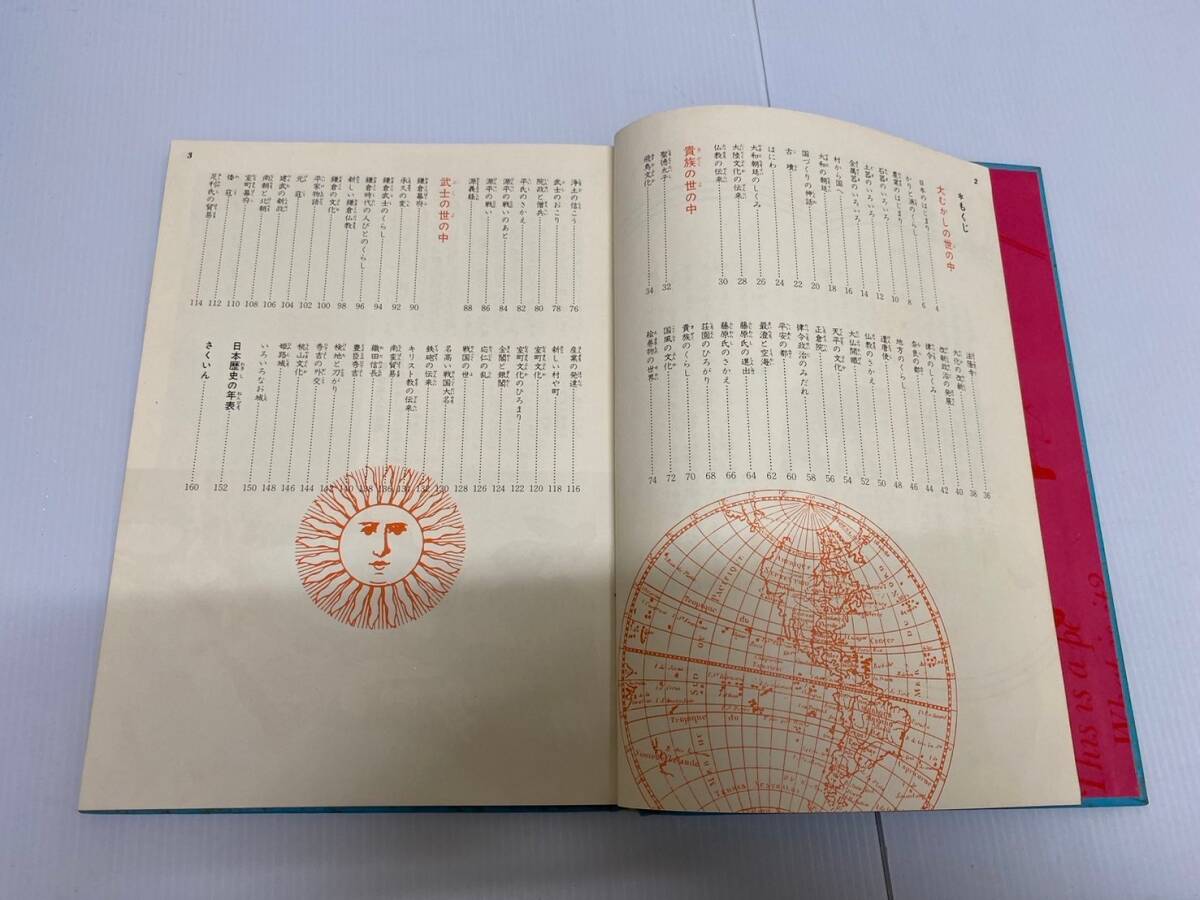 2
*もくじ
大むかしの世の中
日本のはじまり 4
かりと漁のくらし 6
農業のはじまり 8
石器のいろいろ 10
土器のいろいろ 12
金属器のいろいろ 14
村から国へ 16
大和の朝廷 18
国づくりの神話 20
古墳 22
はにわ 24
大和朝廷のしくみ 26
大陸文化の伝来 28
仏教の伝来 30
貴族の世の中
聖徳太子 32
飛鳥文化 34
法隆寺 36
大化の改新 38
改新政治の発展 40
律令のしくみ 42
奈良の都 44
地方のくらし 46
遣唐使 48
仏教のさかえ 50
大仏開眼 52
天平の文化 54
正倉院 56
律令政治のみだれ 58
平安の都 60
最澄と空海 62
藤原氏の進出 64
藤原氏のさかえ 66
荘園のひろがり 68
貴族のくらし 70
国風の文化 72
絵巻物の世界 74
3
浄土の信こう 76
武士のおこり 78
院政と僧兵 80
平氏のさかえ 82
源平の戦いのあと 84
源平の戦い 86
源義経 88
武士の世の中
鎌倉幕府 90
承久の変 92
鎌倉武士のくらし 94
鎌倉時代の人びとのくらし 96
新しい鎌倉仏教 98
鎌倉の文化 100
平家物語 102
元寇 104
建武の新政 106
南朝と北朝 108
室町幕府 110
倭寇 112
足利氏の貿易 114
産業の発達 116
新しい村や町 118
室町文化 120
室町文化のひろまり 122
金閣と銀閣 124
応仁の乱 126
戦国の世 128
名高い戦国大名 130
鉄砲の伝来 132
キリスト教の伝来 134
南蛮貿易 136
織田信長 138
豊臣秀吉 140
検地と刀がり 142
秀吉の外交 144
桃山文化 146
姫路城 148
いろいろなお城 150
日本歴史の年表 152
さくいん 160
This is a pe